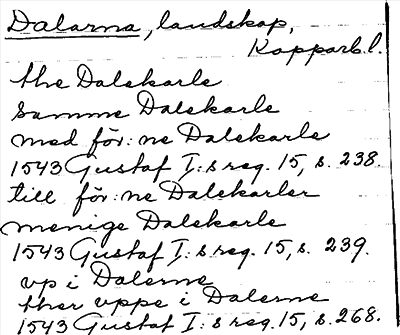 Dalarna, landskap,
Kopparb. l.
the Dalekarle
samme Dalekarle
med för:ne Dalekarle
1543 Gustaf I:s reg. 15, s. 238.
till för:ne Dalekarler
menige Dalekarle
1543 Gustaf I:s reg. 15, s. 239.
vp i Dalerne
ther vppe i Dalerne
1543 Gustaf I:s reg. 15, s. 268.